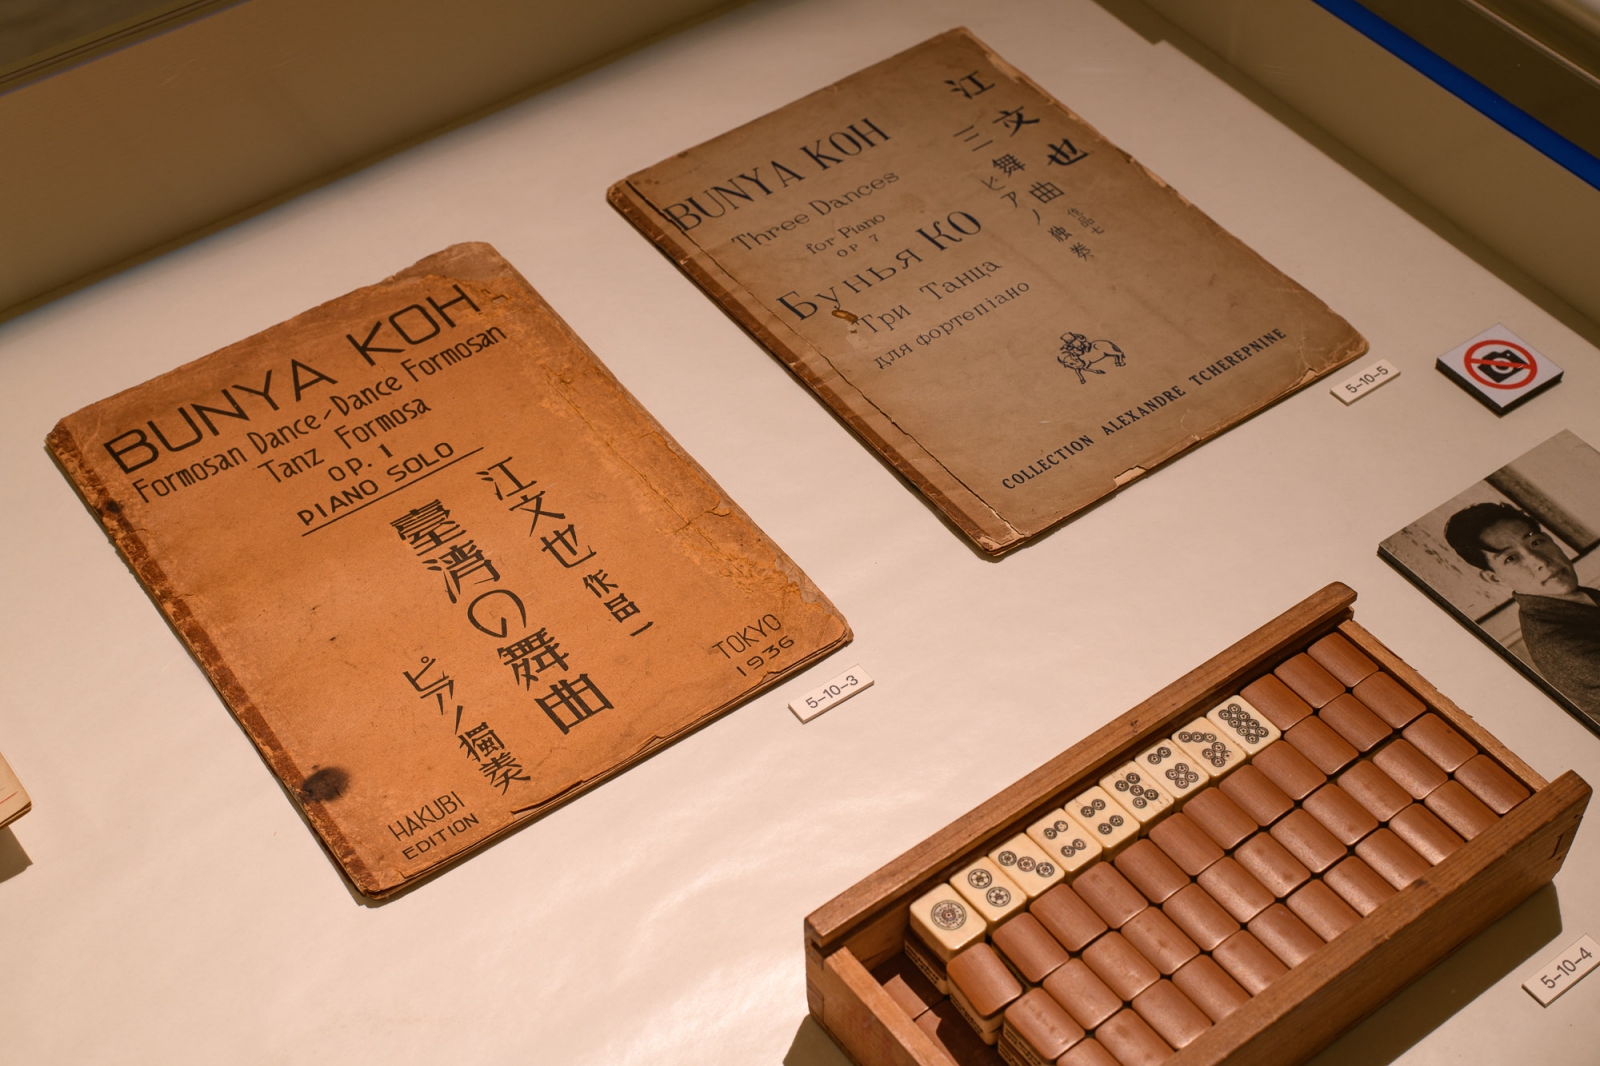 BUNYA KOH
Formosan Dance-Dance Formosan
Tanz Formosa
OP. 1
PIANO SOLO
江文也 作品一
臺湾の舞曲
ピアノ獨奏
TOKYO
1936
HAKUBI
EDITION
5-10-3
BUNYA KOH
Three Dances
for Piano
OP 7
Бунья КО
Три Танца
для фортепіано
江文也
三舞曲 作品七
ピアノ独奏
COLLECTION ALEXANDRE TCHEREPNINE
5-10-5
5-10-4